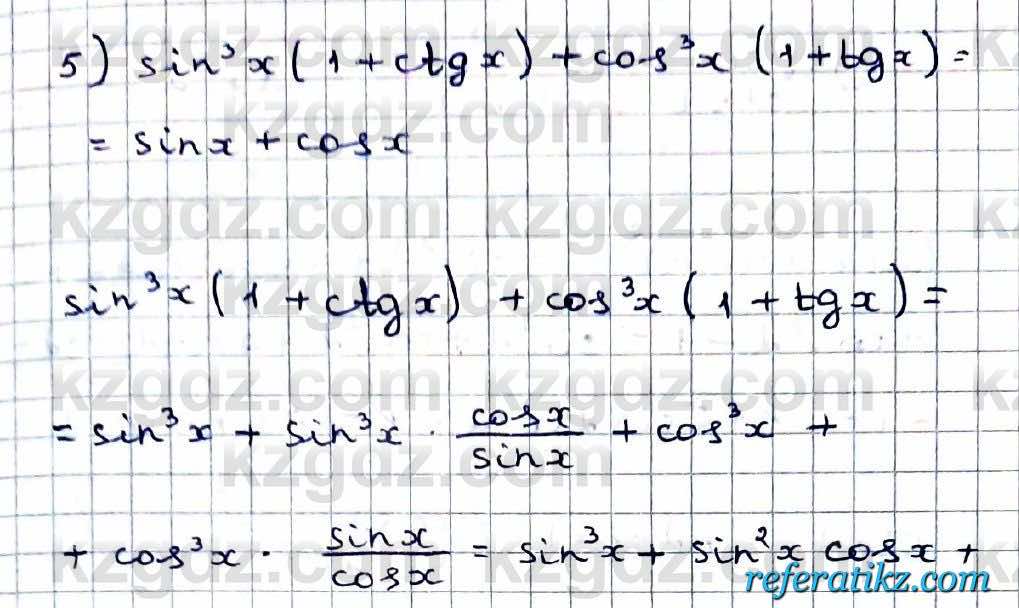 5) sin³x(1+ctgx)+cos³x(1+tgx)=
= sinx + cosx
sin³x(1+ctgx) + cos³x(1+tgx)=
= sin³x + sin³x · cosx/sinx + cos³x +
+ cos³x · sinx/cosx = sin³x + sin²x cosx +
kzgdz.com
referatikz.com